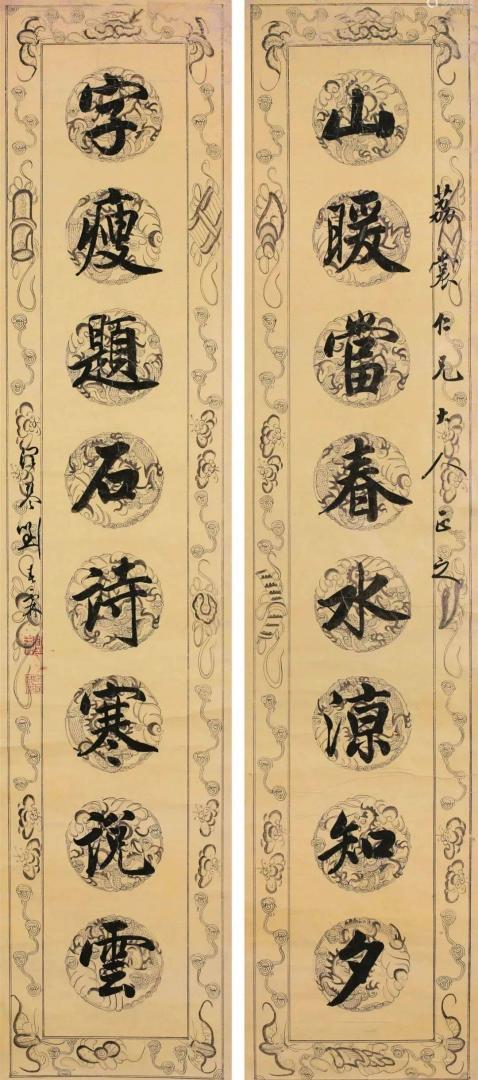 荔裳仁兄大人正之
山暖當春水涼知夕
字瘦題石詩寒說雲
劉春霖